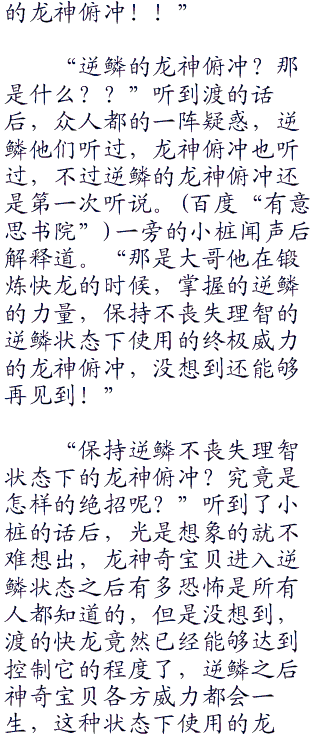 的龙神俯冲！！”
“逆鳞的龙神俯冲？那
是什么？？”听到渡的话
后，众人都的一阵疑惑，逆
鳞他们听过，龙神俯冲也听
过，不过逆鳞的龙神俯冲还
是第一次听说。(百度“有意
思书院”)一旁的小桩闻声后
解释道。“那是大哥他在锻
炼快龙的时候，掌握的逆鳞
的力量，保持不丧失理智的
逆鳞状态下使用的终极威力
的龙神俯冲，没想到还能够
再见到！”
“保持逆鳞不丧失理智
状态下的龙神俯冲？究竟是
怎样的绝招呢？”听到了小
桩的话后，光是想象的就不
难想出，龙神奇宝贝进入逆
鳞状态之后有多恐怖是所有
人都知道的，但是没想到，
渡的快龙竟然已经能够达到
控制它的程度了，逆鳞之后
神奇宝贝各方威力都会一
生，这种状态下使用的龙